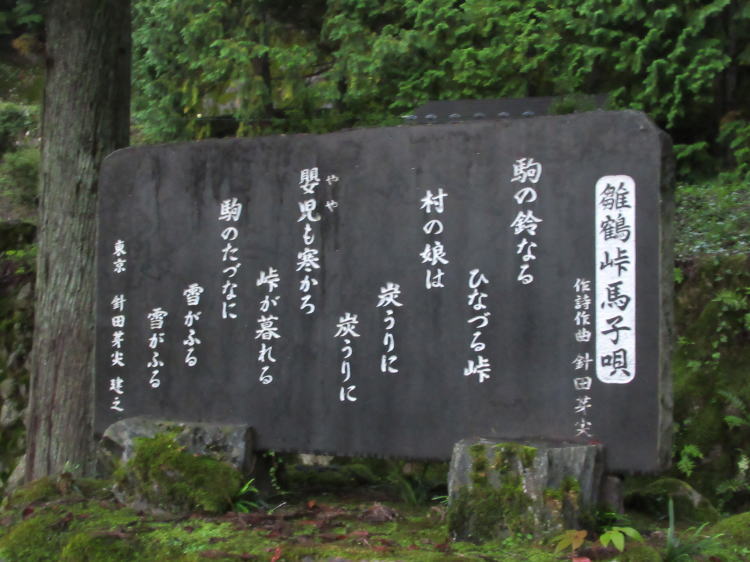 雛鶴峠馬子唄
作詩作曲 針田芽尖
駒の鈴なる
ひなづる峠
村の娘は
炭うりに
炭うりに
嬰児も寒かろ
やや
峠が暮れる
駒のたづなに
雪がふる
雪がふる
東京 針田芽尖 建之